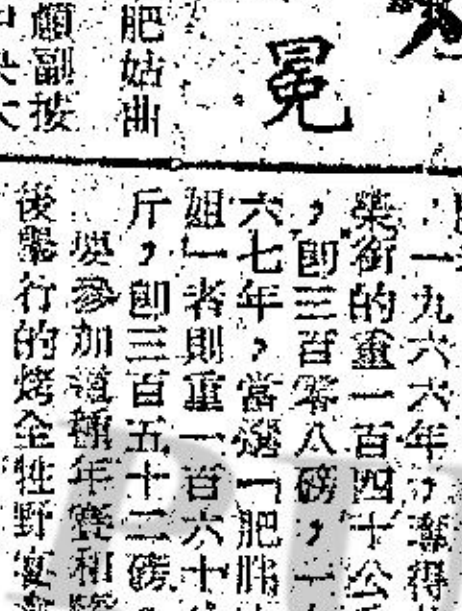 冕
肥姑曲
顏副按
一九六六年，奪得
榮銜的重一百四十公
，卽三百零八磅，一
六七年，當選「肥胖
姐」者則重一百六十
斤，卽三百五十二磅。
要參加這種年賽和
後舉行的烤全牲野宴